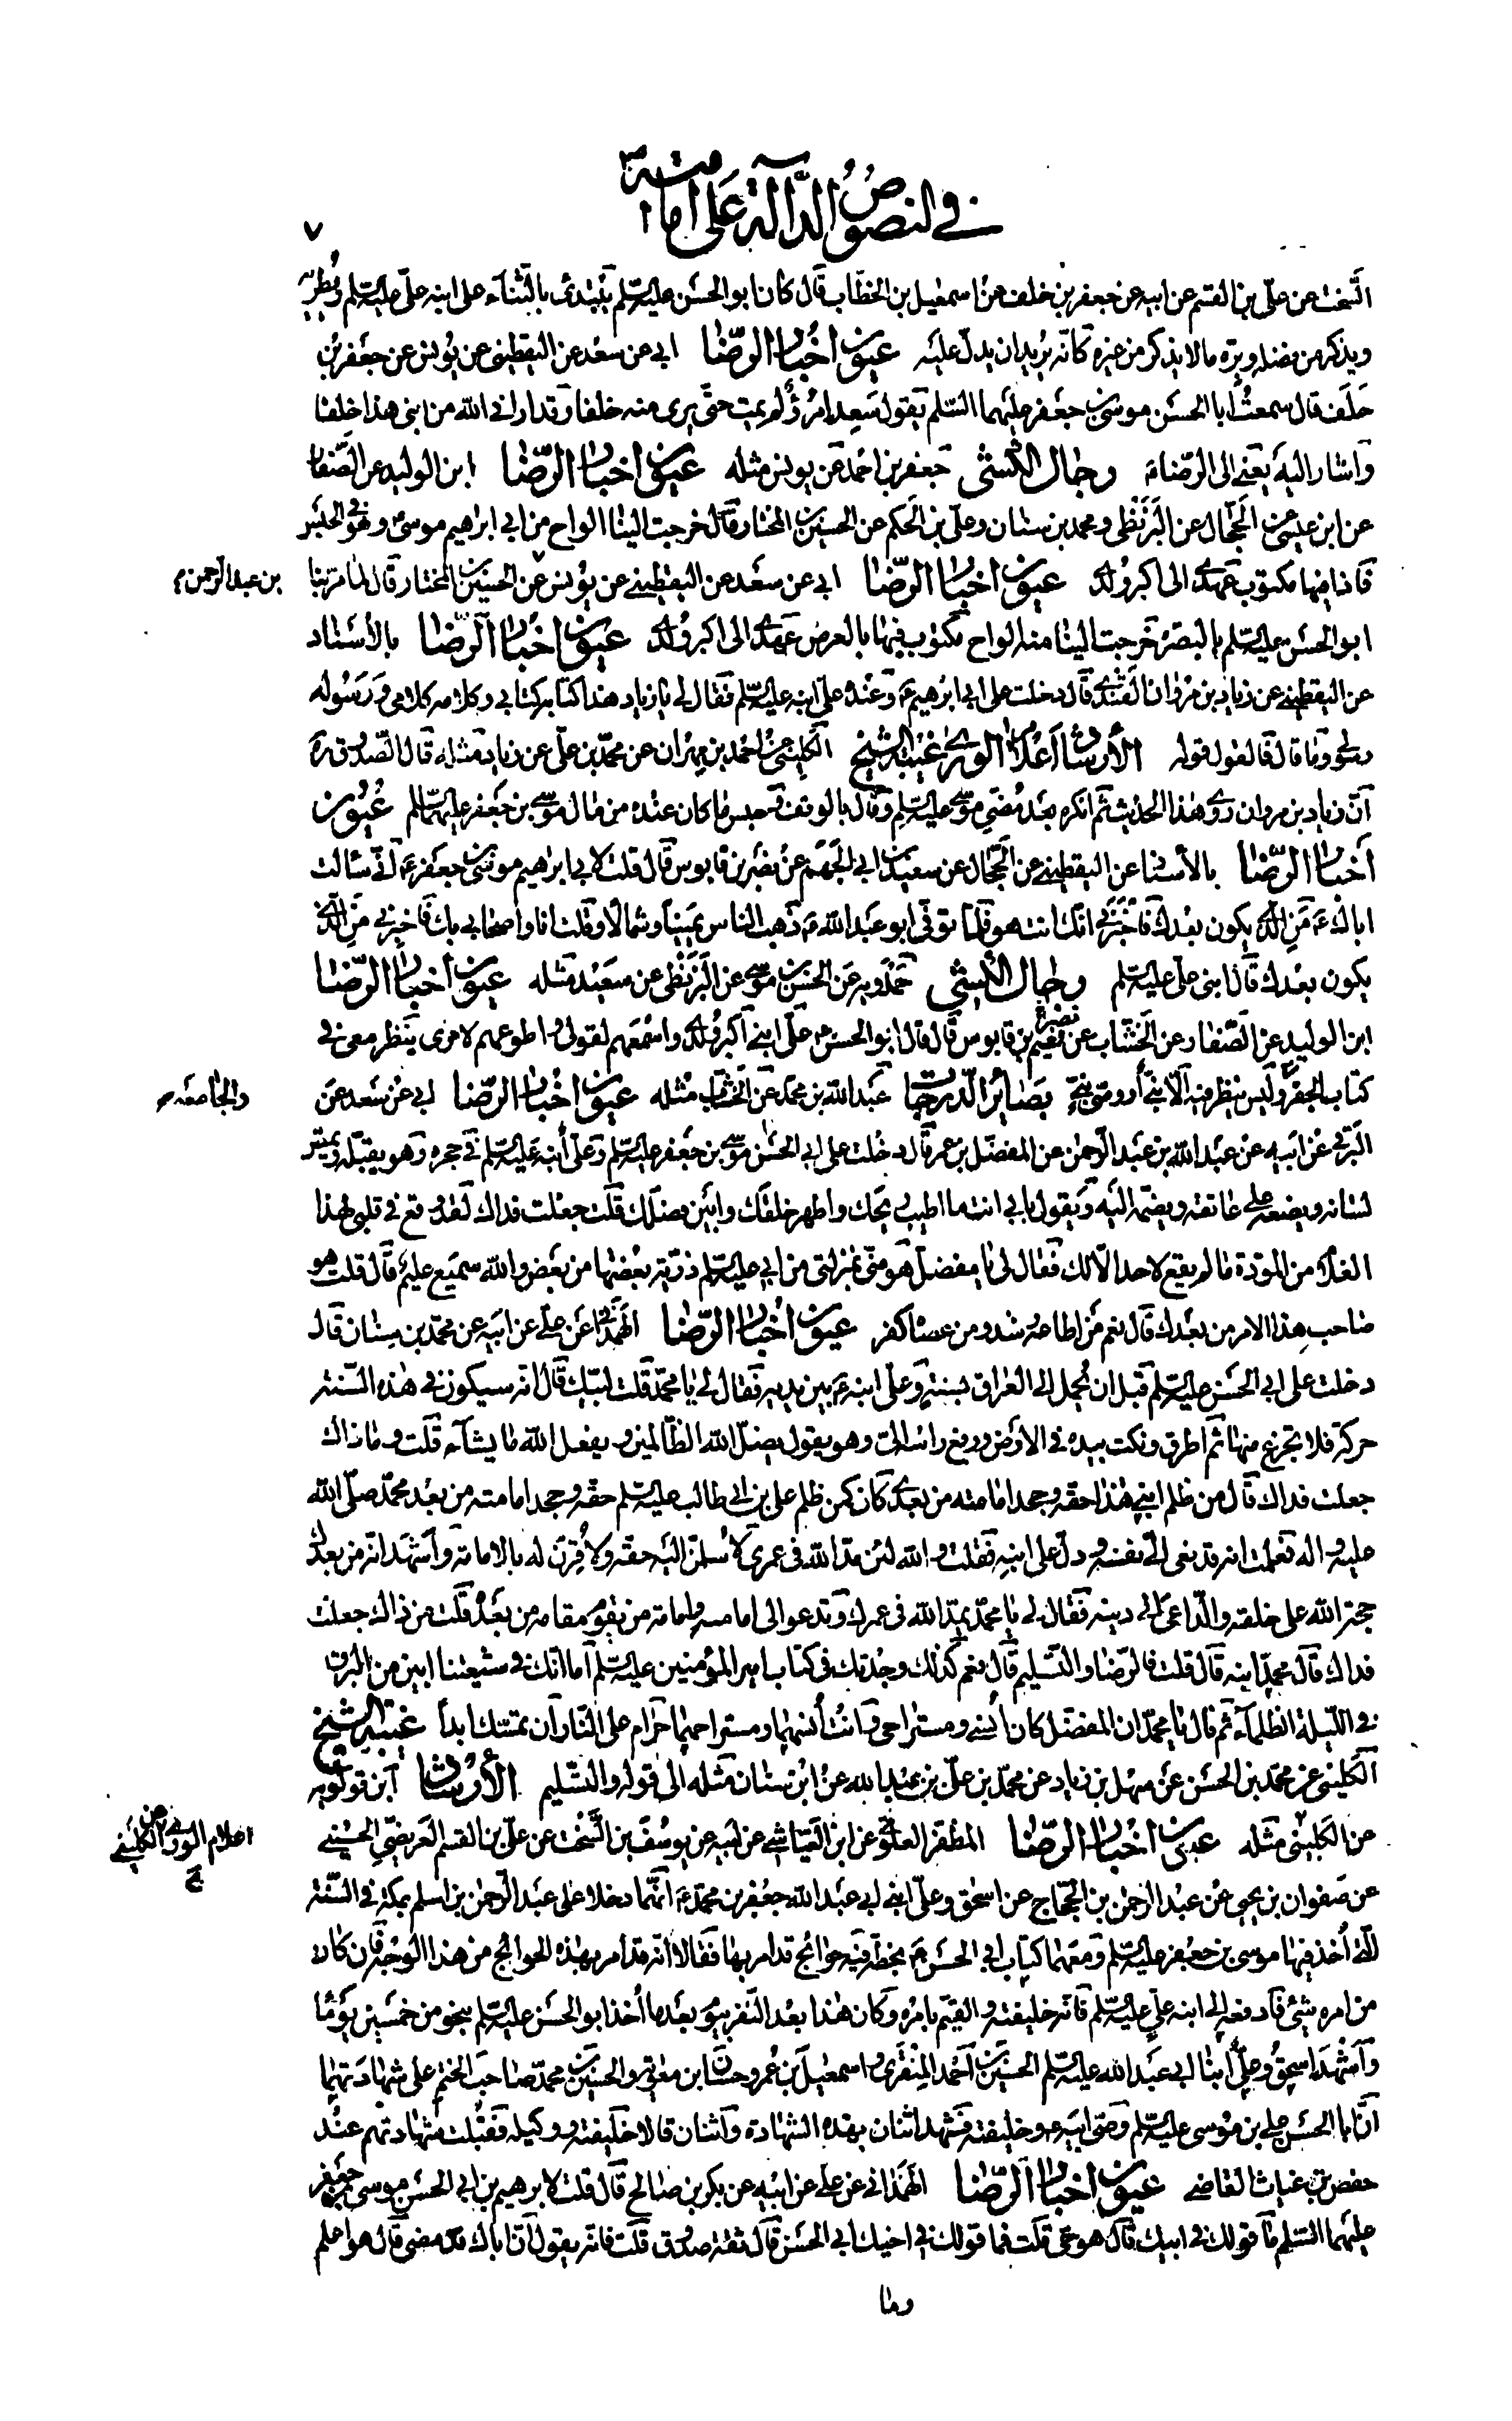 في النصوص الدالة على امامته
٧
السخت عن علي بن القسم عن ابيه عن جعفر بن خلف عن اسمعيل بن الخطاب قال كان ابو الحسن عليه السلم يبتدئ بالثناء على ابنه علي عليه السلم ويطريه
ويذكر من فضله وبره ما لا يذكر من غيره كانه يريد ان يدل عليه عيون اخبار الرضا ابي عن سعد عن اليقطيني عن يونس عن جعفر بن
خلف قال سمعت ابا الحسن موسى بن جعفر عليهما السلم يقول سعد امرؤ لم يمت حتى يرى منه خلفا وقد اراني الله من ابني هذا خلفا
واشار اليه يعني الى الرضا ع رجال الكشي جعفر بن احمد عن يونس مثله عيون اخبار الرضا ابن الوليد عن الصفار
عن ابن عيسى عن الحجال عن البزنظي ومحمد بن سنان وعلي بن الحكم عن الحسين بن المختار قال خرجت الينا الواح من ابي ابراهيم موسى ع وهو في الحبس
فاذا فيها مكتوب عهدي الى اكبر ولدي عيون اخبار الرضا ابي عن سعد عن اليقطيني عن يونس عن الحسين بن المختار قال لما مر بنا
بن عبد الرحمن م
ابو الحسن عليه السلم بالبصرة خرجت الينا منه الواح مكتوب فيها بالعرض عهدي الى اكبر ولدي عيون اخبار الرضا بالاسناد
عن اليقطيني عن زياد بن مروان القندي قال دخلت على ابي ابرهيم ع وعنده علي ابنه عليه السلم فقال لي يا زياد هذا كتابه كتابي وكلامه كلامي ورسوله
رسولي وما قال فالقول قوله الارشاد اعلام الورى غيبة الشيخ الكليني عن احمد بن مهران عن محمد بن علي عن زياد مثله قال الصدوق ره
ان زياد بن مروان روى هذا الحديث ثم انكره بعد مضي موسى عليه السلم وقال بالوقف وحبس ما كان عنده من مال موسى بن جعفر عليهما السلم عيون
اخبار الرضا بالاسناد عن اليقطيني عن الحجال عن سعيد بن ابي الجهم عن نصر بن قابوس قال قلت لابي ابراهيم موسى بن جعفر ع اني سالت
اباك ع من الذي يكون بعدك فاخبرني انك انت هو فلما توفي ابو عبد الله ع ذهب الناس يمينا وشمالا وقلت انا واصحابي بك فاخبرني من الذي
يكون بعدك قال ابني علي عليه السلم رجال الكشي حمدويه عن الحسن بن موسى عن البزنظي عن سعيد مثله عيون اخبار الرضا
ابن الوليد عن الصفار عن الخشاب عن نعيم بن قابوس قال قال ابو الحسن ع علي ابني اكبر ولدي واسمعهم لقولي واطوعهم لامري ينظر معي في
كتاب الجفر وليس ينظر فيه الا نبي او وصي نبي بصائر الدرجات عبد الله بن محمد عن الخشاب مثله عيون اخبار الرضا ابي عن سعد عن
والجامعة
البرقي عن ابيه عن عبد الله بن عبد الرحمن عن المفضل بن عمر قال دخلت على ابي الحسن موسى بن جعفر عليه السلم وعلي ابنه عليه السلم في حجره وهو يقبله ويمص
لسانه ويضعه على عاتقه ويضمه اليه ويقول بابي انت ما اطيب ريحك واطهر خلقك وابين فضلك قلت جعلت فداك لقد وقع في قلبي لهذا
الغلام من المودة ما لم يقع لاحد الا لك فقال لي يا مفضل هو مني بمنزلتي من ابي عليه السلم ذرية بعضها من بعض والله سميع عليم قال قلت هو
صاحب هذا الامر من بعدك قال نعم من اطاعه رشد ومن عصاه كفر عيون اخبار الرضا الهمداني عن علي عن ابيه عن محمد بن سنان قال
دخلت على ابي الحسن عليه السلم قبل ان يحمل الى العراق بسنة وعلي ابنه ع بين يديه فقال لي يا محمد قلت لبيك قال انه سيكون في هذه السنة
حركة فلا تجزع منها ثم اطرق ونكت بيده في الارض ورفع راسه الي وهو يقول يضل الله الظالمين ويفعل الله ما يشاء قلت وما ذاك
جعلت فداك قال من ظلم ابني هذا حقه وجحد امامته من بعدي كان كمن ظلم علي بن ابي طالب عليه السلم حقه وجحد امامته من بعد محمد صلى الله
عليه واله فعلمت انه قد نعى الي نفسه ودل على ابنه فقلت والله لئن مد الله في عمري لاسلمن اليه حقه ولاقرن له بالامامة واشهد انه من بعدك
حجة الله على خلقه والداعي الى دينه فقال لي يا محمد يمد الله في عمرك وتدعو الى امامته وامامة من يقوم مقامه من بعده قلت من ذاك جعلت
فداك قال محمد ابنه قال قلت فالرضا والتسليم قال نعم كذلك وجدتك في كتاب امير المؤمنين عليه السلم اما انك في شيعتنا ابين من البرق
في الليلة الظلماء ثم قال يا محمد ان المفضل كان انسي ومستراحي وانت انسهما ومستراحهما حرام على النار ان تمسك ابدا غيبة الشيخ
الكليني عن محمد بن الحسن عن سهل بن زياد عن محمد بن علي بن عبد الله عن ابن سنان مثله الى قوله والتسليم الارشاد ابن قولويه
عن الكليني مثله عيون اخبار الرضا المظفر العلوي عن ابن العياشي عن ابيه عن يوسف بن السخت عن علي بن القسم العريضي الحسيني
اعلام الورى عن الكليني
عن صفوان بن يحيى عن عبد الرحمن بن الحجاج عن اسحق وعلي ابني ابي عبد الله جعفر بن محمد ع انهما دخلا على عبد الرحمن بن اسلم بمكة في السنة
التي اخذ فيها موسى بن جعفر عليه السلم ومعهما كتاب ابي الحسن ع بخطه فيه حوائج قد امر بها فقالا انه قد امر بهذه الحوائج من هذا الوجه فان كان
من امره شيء فادفعه الى ابنه علي عليه السلم فانه خليفته والقيم بامره وكان هذا بعد النفر بيوم بعد ما اخذ ابو الحسن عليه السلم بنحو من خمسين يوما
واشهدا اسحق وعلي ابنا ابي عبد الله عليه السلم الحسين بن احمد المنقري واسمعيل بن عمر وحسان بن معاوية والحسين بن محمد صاحب الختم على شهادتهما
ان ابا الحسن علي بن موسى عليه السلم وصي ابيه ع وخليفته فشهد اثنان بهذه الشهادة واثنان قالا خليفته ووكيله فقبلت شهادتهم عند
حفص بن غياث القاضي عيون اخبار الرضا الهمداني عن علي عن ابيه عن بكر بن صالح قال قلت لابرهيم بن ابي الحسن موسى بن جعفر
عليهما السلم ما قولك في ابيك قال هو حي قلت فما قولك في اخيك ابي الحسن قال ثقة صدوق قلت فانه يقول ان اباك قد مضى قال هو اعلم
وما